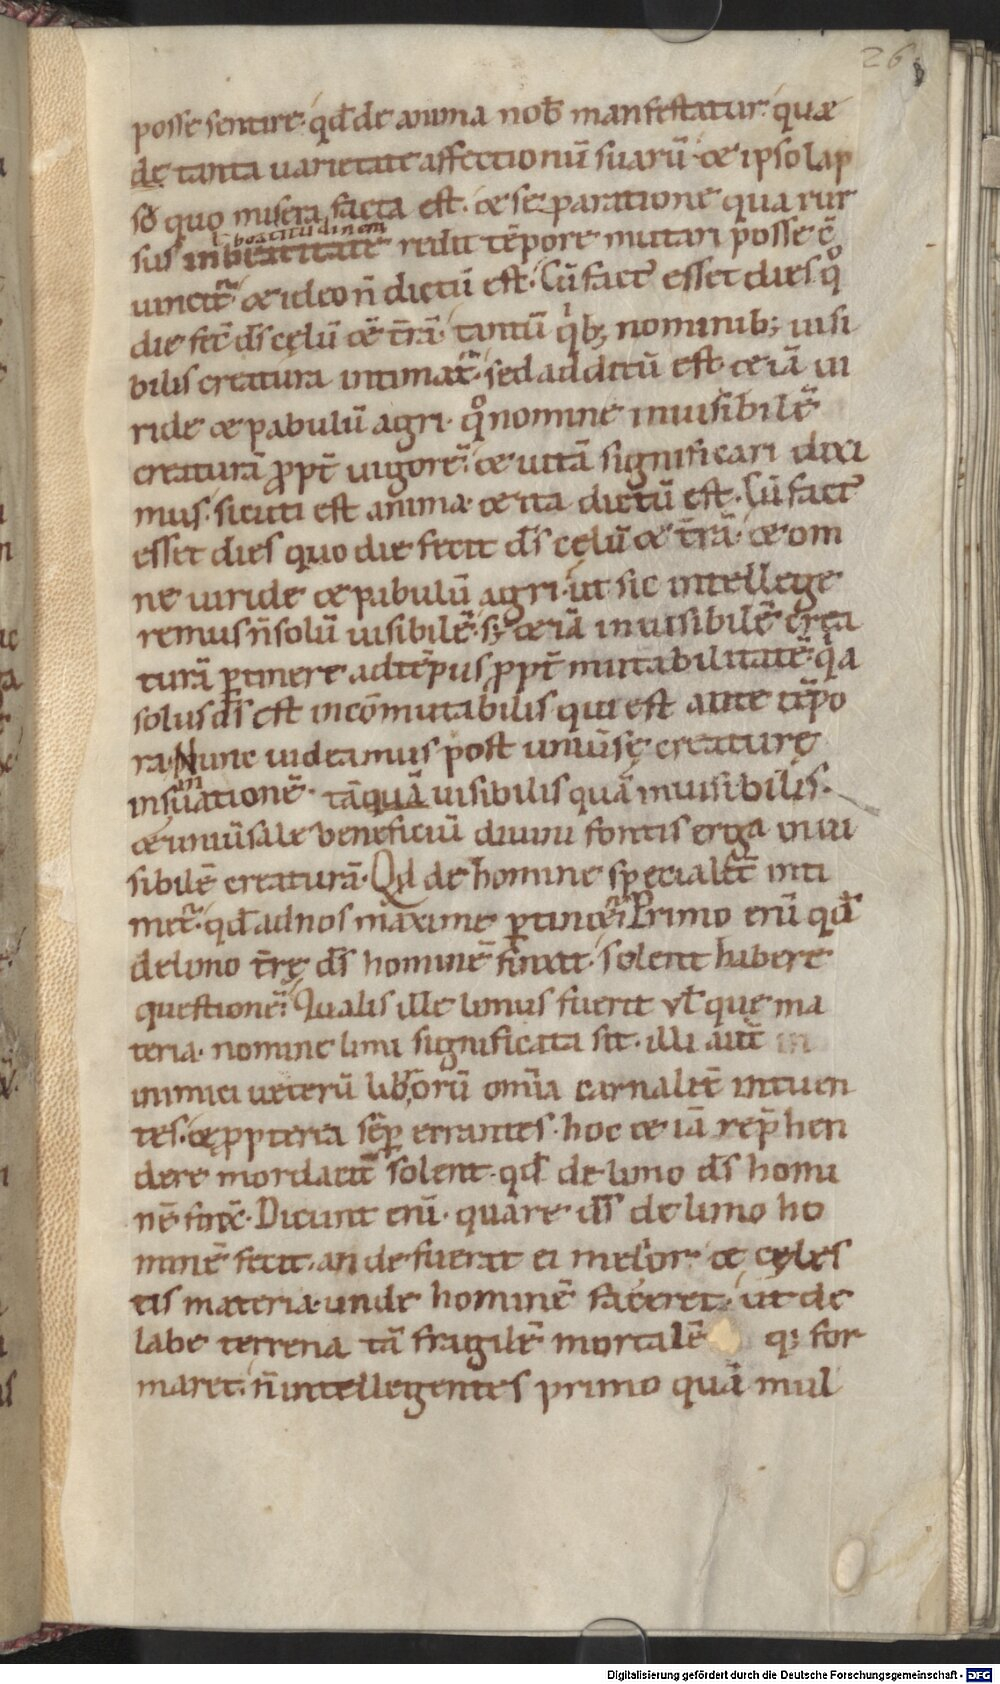 26
posse sentire· qd̄ de anima nob̄ manfestatur· quæ
de tanta uarietate affectionū suarū· & ipso lap
sō quo misera facta est· & se paratione qua rur
ł beatitudinem
sus in beatitate redit tēpore mutari posse ē
uincit᷑· & ideo n̄ dictū est· Cū fact᷑ esset dies qͦ
die fec̄ dn̄s cęlū & t̄rā· tantū qͥbꝫ nominibꝫ uisi
bilis creatura intimat᷑· sed additū est· & iā ui
ride & pabulū agri· qͦ nomine inuisibilē
creaturā ꝓpt̄ uigorē· & uitā significari dixi
mus· sicuti est anima· & ita dictū est· Cū fact᷑
esset dies quo die fecit d̄s cęlū & t̄rā· & om
ne uiride & pabulū agri· ut sic intellege
remus n̄ solū uisibilē· sꝫ & iā inuisibilē crea
turā ꝑtinere ad tēpus ꝓpt̄ mutabilitatē· qͥa
solus d̄s est incōmutabilis qui est ante tēpo
ra· Nunc uideamus post uniūsę creaturę
in
insuationē· tāquā uisibilis quā inuisibilis·
& uniūsale beneficiū diuini fontis erga inui
sibilē creaturā· Qd̄ de homine specialit̄ inti
met᷑· qd̄ ad nos maxime ꝑtin& Primo enī qd̄
de limo t̄rę d̄s hominē finxit· solent habere
questionē· Qualis ille limus fuerit ł que ma
teria· nomine limi significata sit· illi aut̄ in
inimici ueterū librorū omīa carnalit̄ intuen
tes· & ꝓpterea sēꝑ errantes· hoc & iā rep̄hen
dere mordacit̄ solent· qd̄ de limo d̄s homi
nē finx̄· Dicunt enī· quare d̄s de limo ho
minē fecit· an defuerat ei melior & cęles
tis materia· unde hominē faceret· ut de
labe terrena tā fragilē mortalē qꝫ for
maret· n̄ intellegentes primo quā mul
Digitalisierung gefördert durch die Deutsche Forschungsgemeinschaft - DFG